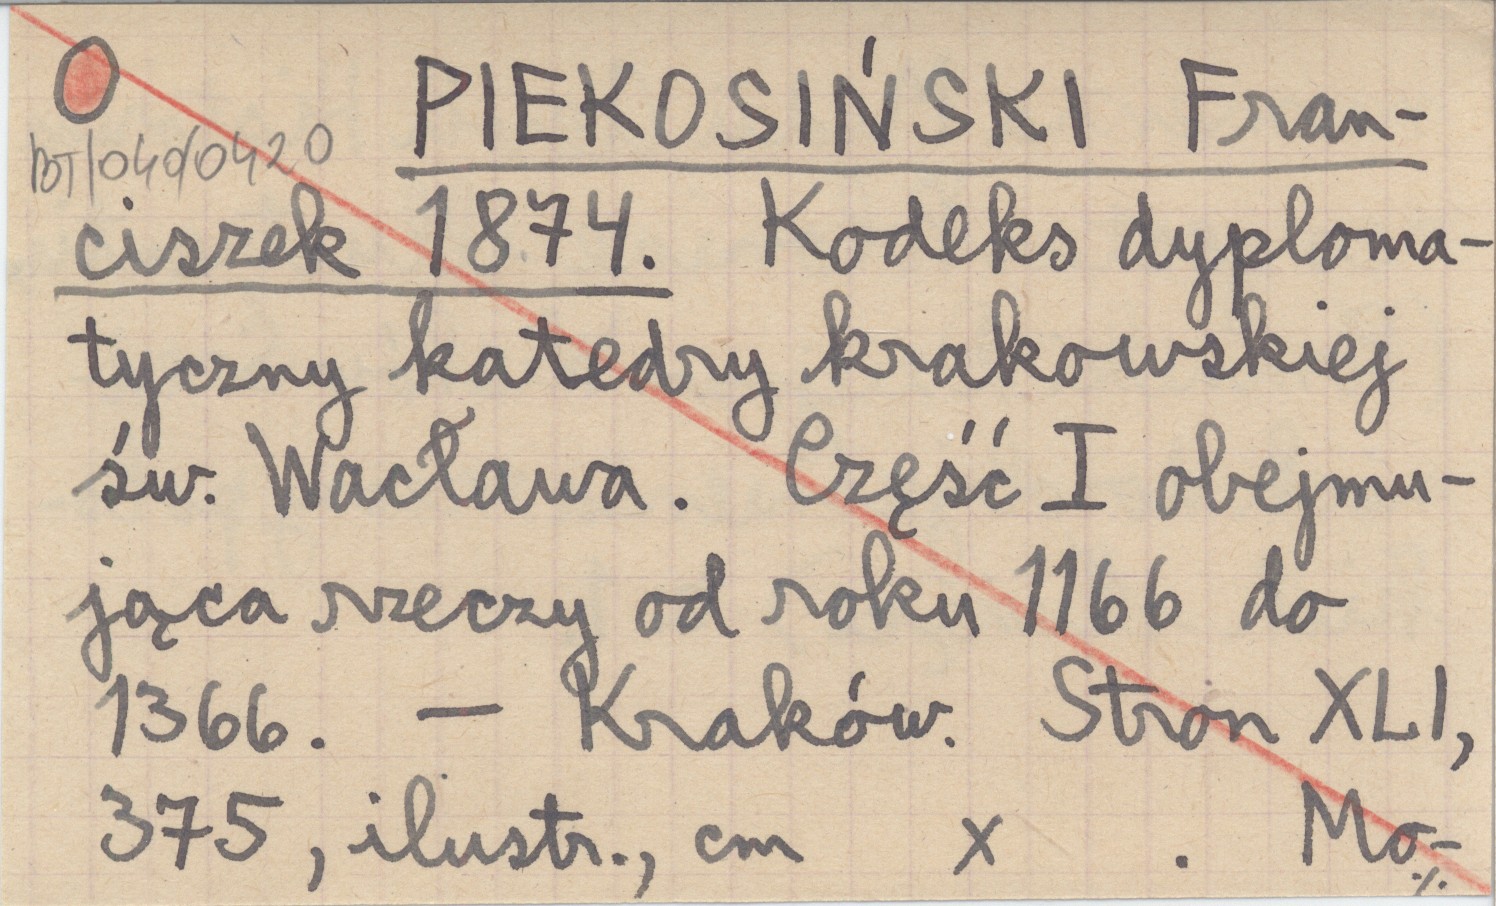 PIEKOSIŃSKI Fran-
BT/040/0420
ciszek 1874. Kodeks dyploma-
tyczny katedry krakowskiej
św. Wacława. Część I obejmu-
jąca rzeczy od roku 1166 do
1366. — Kraków. Stron XLI,
375, ilustr., cm x . Mo-
./.